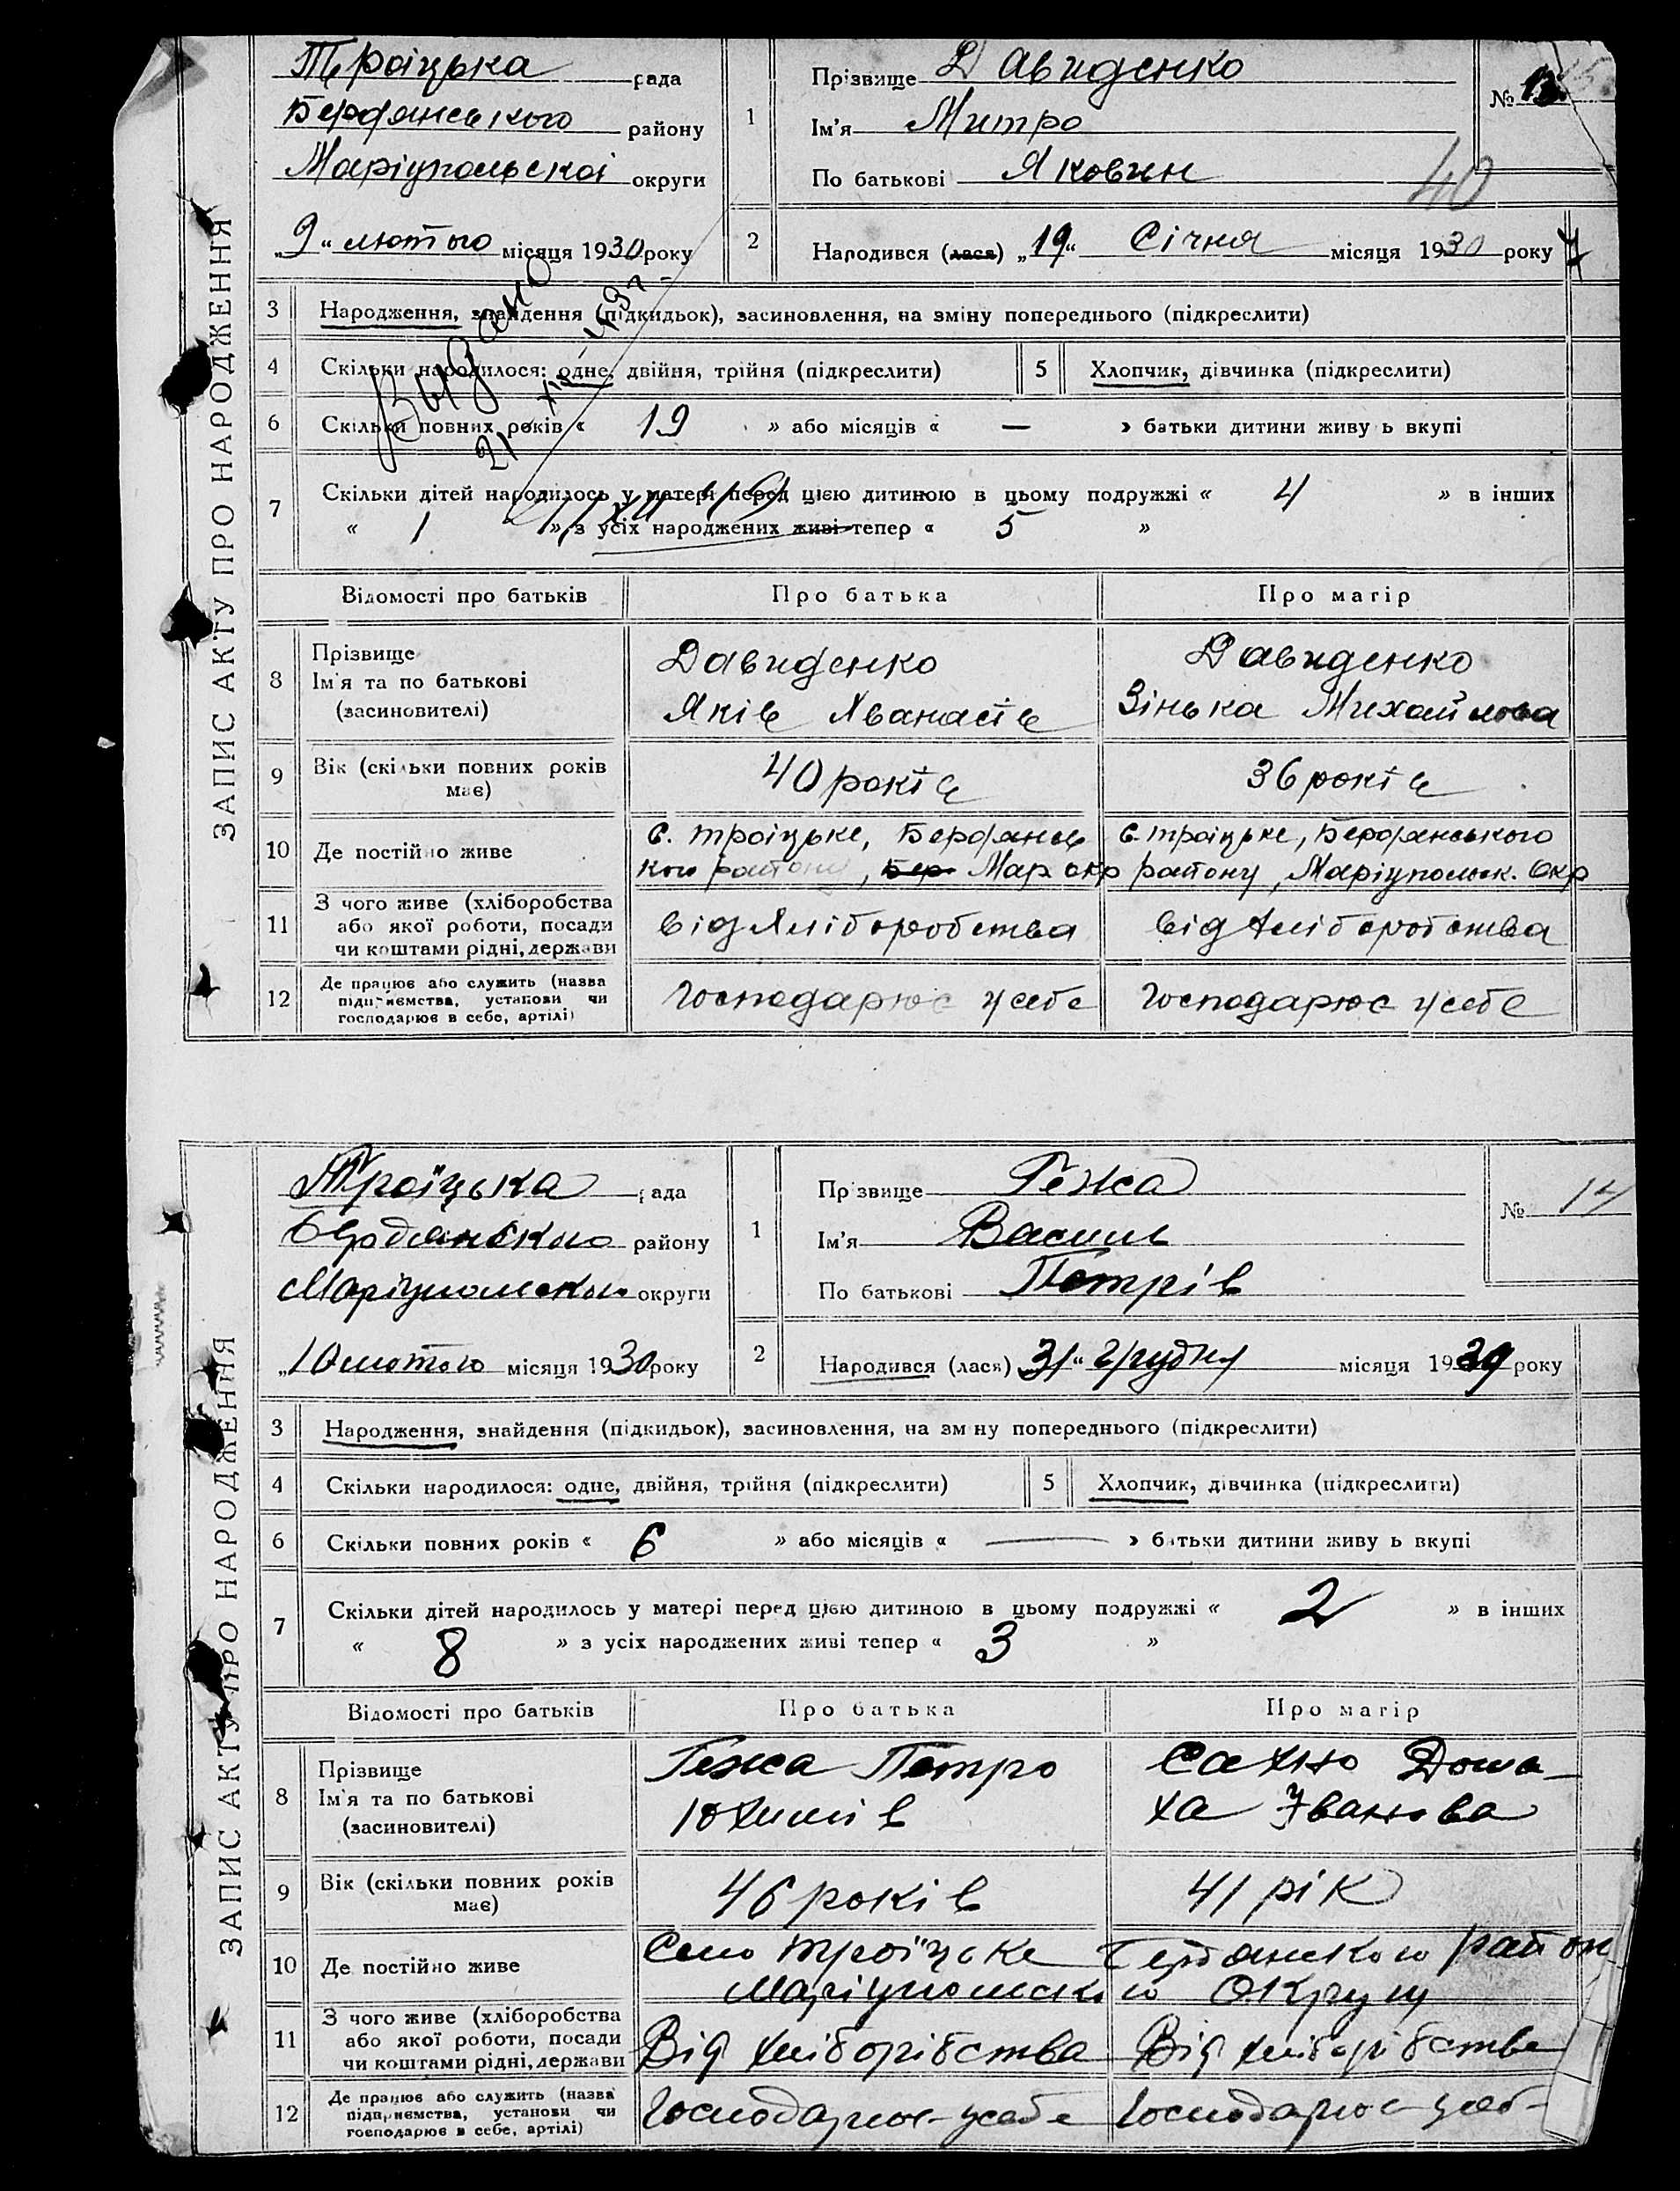 ЗАПИС АКТУ ПРО НАРОДЖЕННЯ
Троіцька рада
Бердянського району
Маріупольскоі округи
„9“ лютого місяця 1930 року
1
Прізвище Давиденко
Ім'я Митро
По батькові Яковин
№ 13
40
2
Народився (лася) „19“ Січня місяця 1930 року
3 Народження, знайдення (підкидьок), засиновлення, на зміну попереднього (підкреслити)
4 Скільки народилося: одне, двійня, трійня (підкреслити) 5 Хлопчик, дівчинка (підкреслити)
Выдано
6 Скільки повних років « 19 » або місяців « — » батьки дитини живуть вкупі
7 Скільки дітей народилось у матері перед цією дитиною в цьому подружжі « 4 » в інших
« 1 » з усіх народжених живі тепер « 5 »
Відомості про батьків Про батька Про матір
8 Прізвище Ім'я та по батькові (засиновителі)
Давиденко Яків Хванасів
Давиденко Зінька Михайлова
9 Вік (скільки повних років має) 40 років 36 років
10 Де постійно живе
с. троіцьке, Бердянсь кого району, Бер Мар окр
с. троіцьке, Бердянського району, Маріупольск. Окр
11 З чого живе (хліборобства або якої роботи, посади чи коштами рідні, держави
від хліборобства від хліборобства
12 Де працює або служить (назва підприємства, установи чи господарює в себе, артілі)
Господарює усебе Господарює усебе
ЗАПИС АКТУ ПРО НАРОДЖЕННЯ
Троїцька рада
Бердянского району
Маріупольскои округи
„10 лютого місяця 1930 року
1
Прізвище Гежа
Ім'я Василь
По батькові Петрів
№ 14
2
Народився (лася) „31“ грудня місяця 1929 року
3 Народження, знайдення (підкидьок), засиновлення, на зміну попереднього (підкреслити)
4 Скільки народилося: одне, двійня, трійня (підкреслити) 5 Хлопчик, дівчинка (підкреслити)
6 Скільки повних років « 6 » або місяців « — » батьки дитини живуть вкупі
7 Скільки дітей народилось у матері перед цією дитиною в цьому подружжі « 2 » в інших
« 8 » з усіх народжених живі тепер « 3 »
Відомості про батьків Про батька Про матір
8 Прізвище Ім'я та по батькові (засиновителі)
Гежа Петро Юхимів
Сахно Домаха Іванова
9 Вік (скільки повних років має) 46 років 41 рік
10 Де постійно живе
Село троїцьке Бердянского район
Маріупольского Округу
11 З чого живе (хліборобства або якої роботи, посади чи коштами рідні, держави
Від хліборібства Від хліборібства
12 Де працює або служить (назва підприємства, установи чи господарює в себе, артілі)
Господарює усебе Господарює усеб